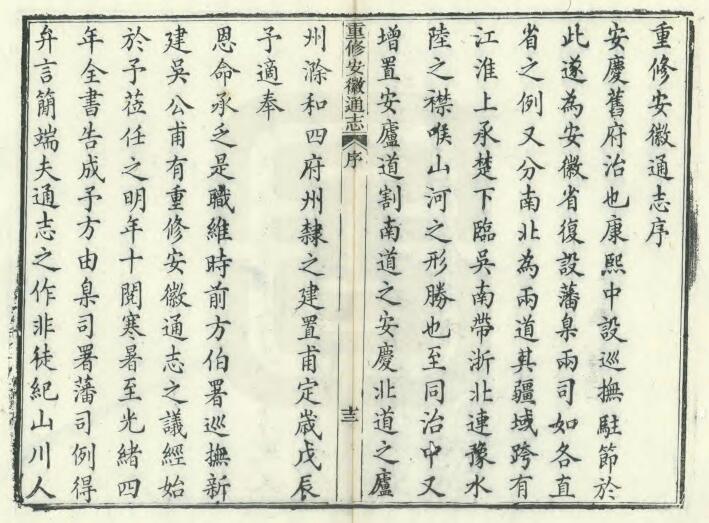 重修安徽通志序
安慶舊府治也康熙中設巡撫駐節於
此遂為安徽省復設藩臬兩司如各直
省之例又分南北為兩道其疆域跨有
江淮上承楚下臨吳南帶浙北連豫水
陸之襟喉山河之形勝也至同治中又
增置安廬道割南道之安慶北道之廬
重修安徽通志
序
十三
州滁和四府州隸之建置甫定歲戊辰
予適奉
恩命承乏是職維時前方伯署巡撫新
建吳公甫有重修安徽通志之議經始
於予蒞任之明年十閱寒暑至光緒四
年全書告成予方由臬司署藩司例得
弁言簡端夫通志之作非徒紀山川人